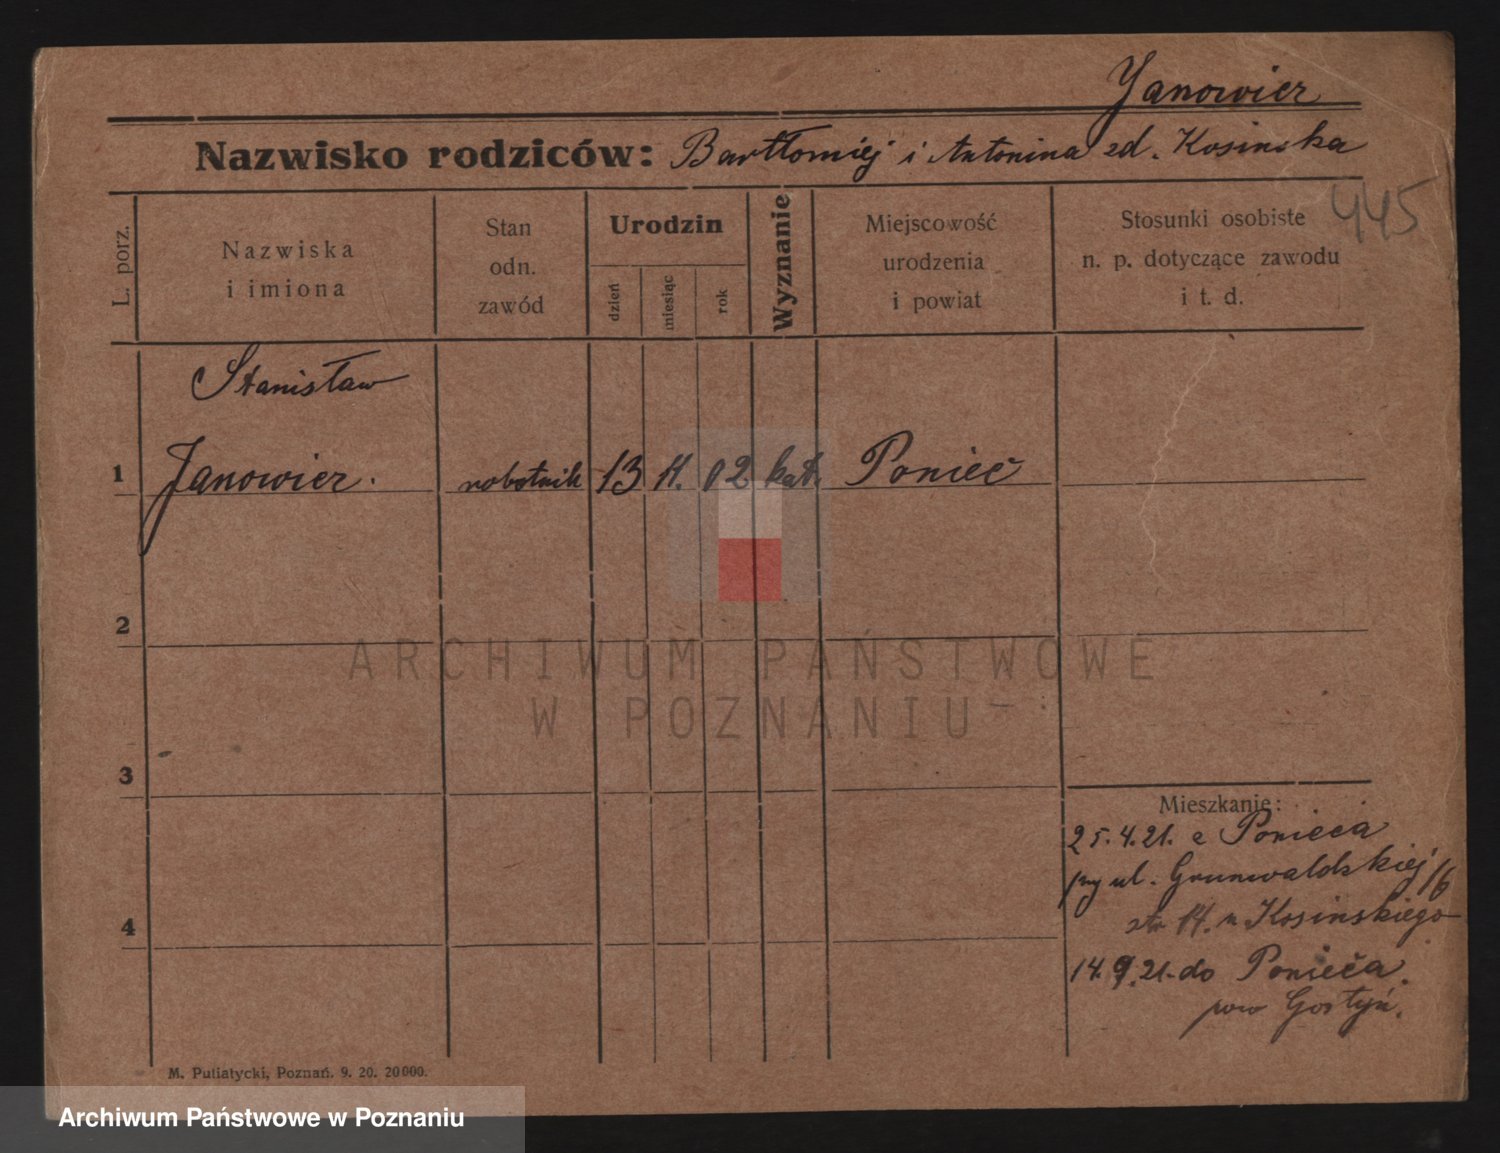 Janowier
Nazwisko rodziców: Bartłomiej i Antonina zd. Kosinska
445
L. porz.
Nazwiska
i imiona
Stan
odn.
zawód
Urodzin
dzień
miesiąc
rok
Wyznanie
Miejscowość
urodzenia
i powiat
Stosunki osobiste
n. p. dotyczące zawodu
i t. d.
Stanisław
1 Janowier. robotnik 13 11. 02 kat. Poniec
2
3
4
Mieszkanie:
25.4.21. z Ponieca
przy ul. Grunwaldzkiej 16
str 14. u Kosinskiego
14.9.21. do Ponieca.
pow Gostyń.
M. Putiatycki, Poznań. 9. 20. 20000.
ARCHIWUM PAŃSTWOWE
W POZNANIU
Archiwum Państwowe w Poznaniu